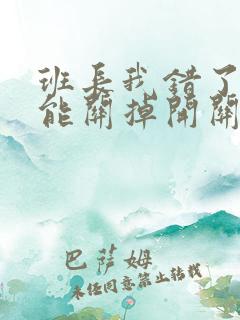 班长我错了
能关掉开关
巴萨姆
未经同意禁止转载